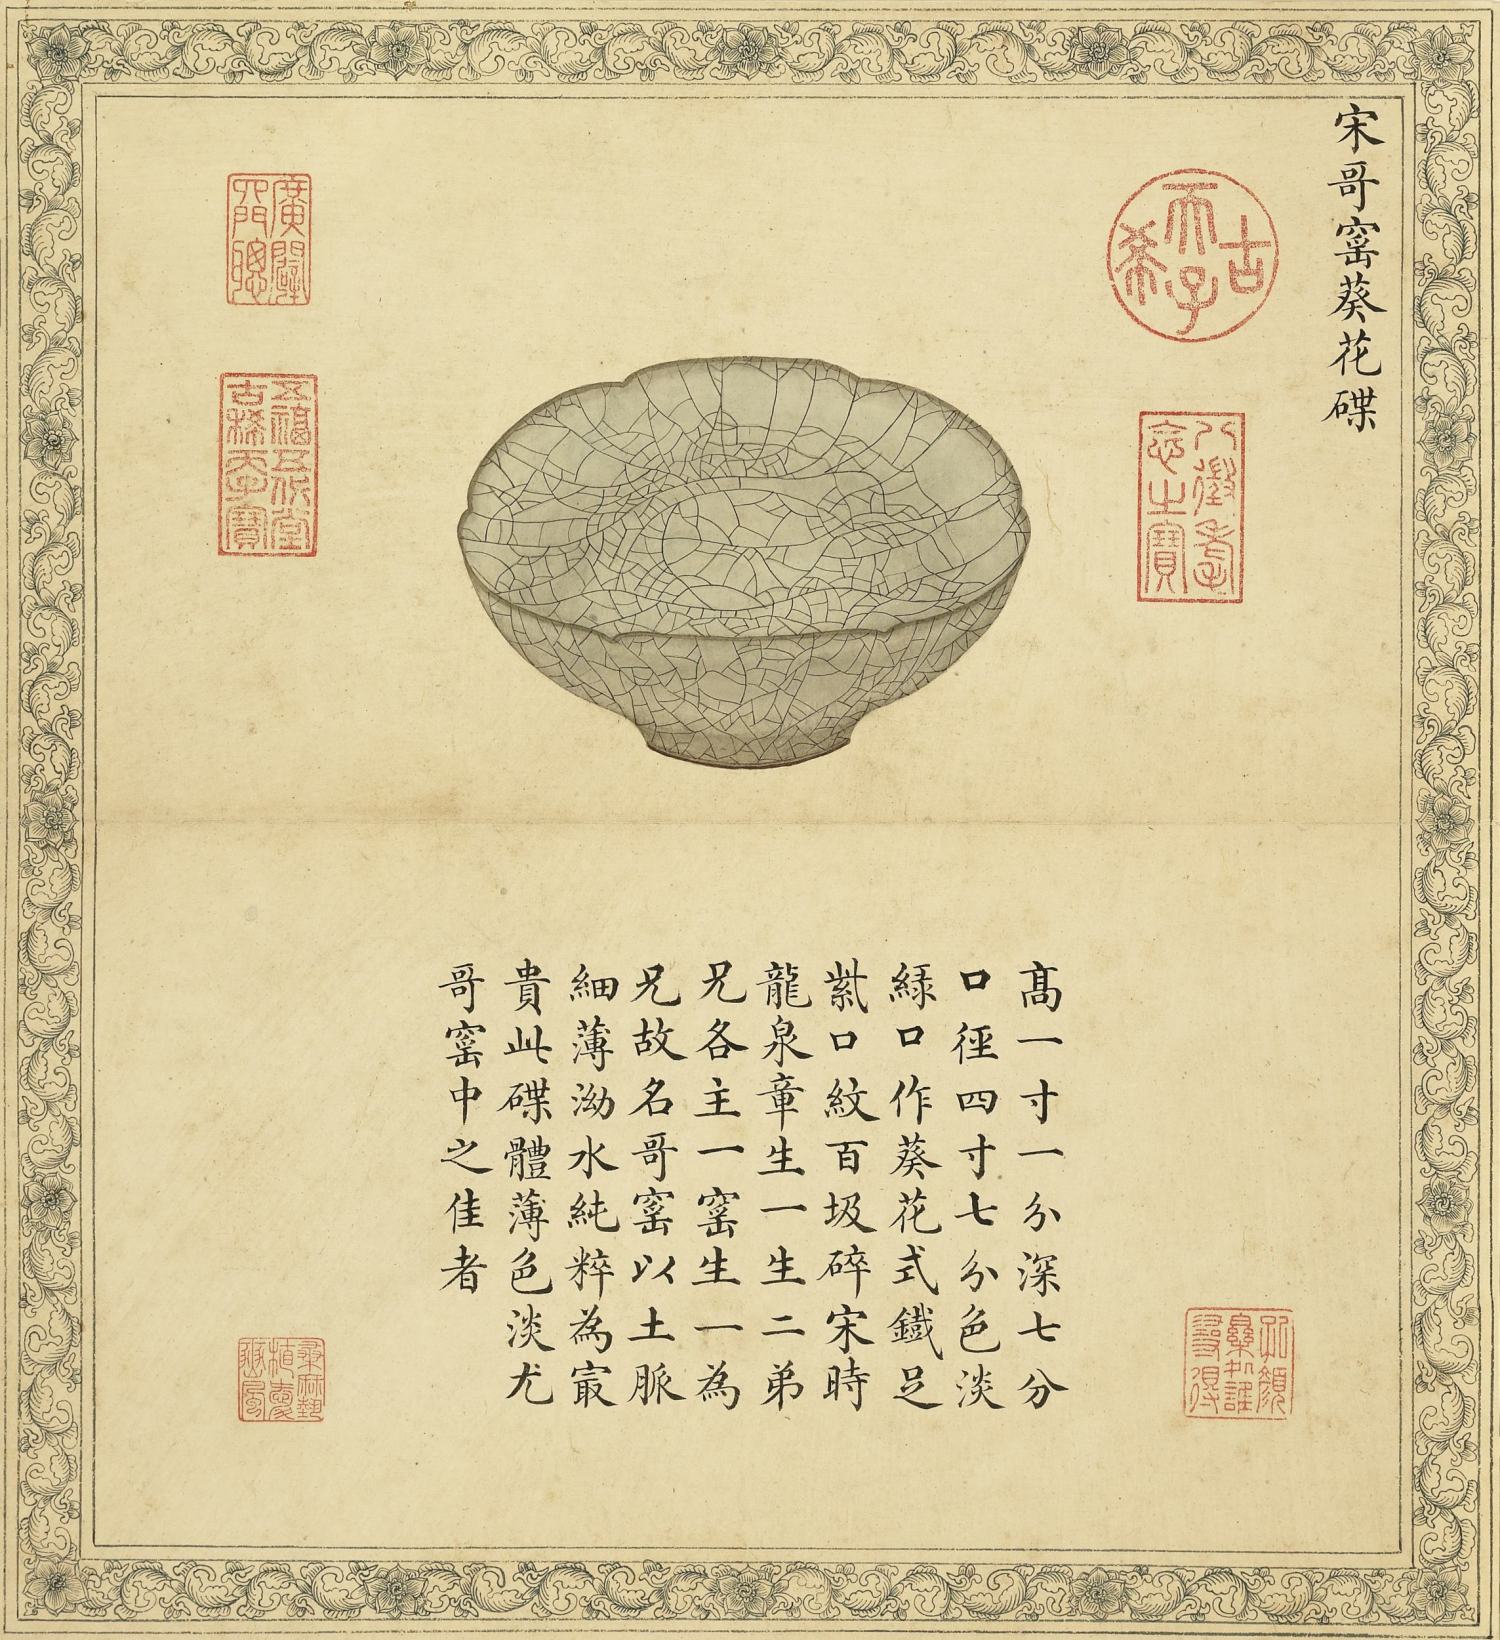 宋哥窰葵花碟
古希天子
八徵耄念之寶
廣闢四門聰
五福五代堂古稀天子寶
高一寸一分深七分
口徑四寸七分色淡
綠口作葵花式鐵足
紫口紋百圾碎宋時
龍泉章生一生二弟
兄各主一窰生一為
兄故名哥窰以土脈
細薄泑水純粹為㝡
貴此碟體薄色淡尤
哥窰中之佳者